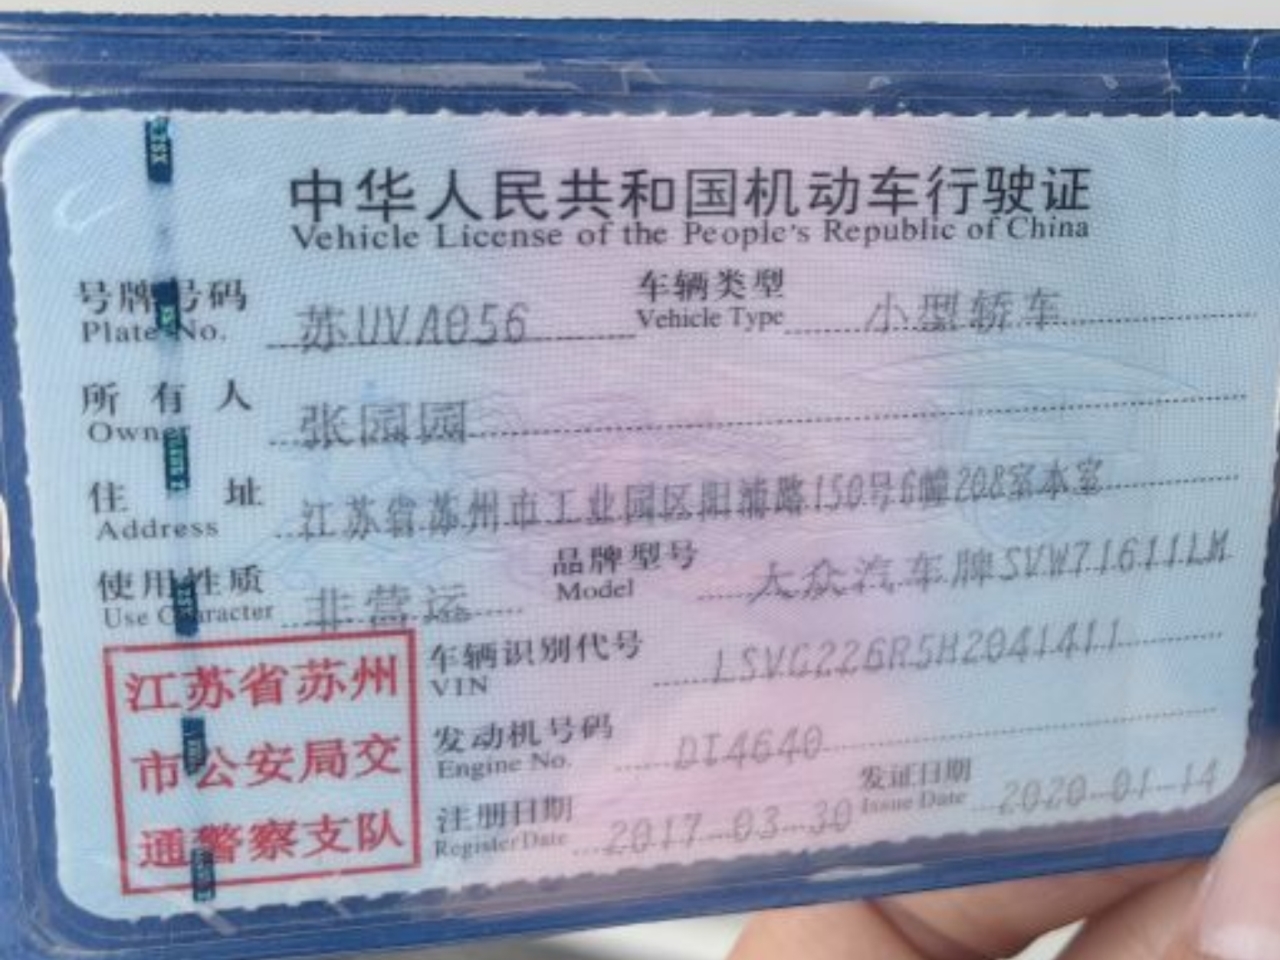 中华人民共和国机动车行驶证
Vehicle License of the People's Republic of China
号牌号码 苏UVA056 车辆类型 小型轿车
Plate No. Vehicle Type
所有人 张园园
Owner
住址 江苏省苏州市工业园区阳浦路150号6幢208室本室
Address
使用性质 非营运 品牌型号 大众汽车牌SVW71611LM
Use Character Model
车辆识别代号 LSVG226R5H2041411
VIN
发动机号码 DI4640
Engine No.
注册日期 2017-03-30 发证日期 2020-01-14
Register Date Issue Date
江苏省苏州
市公安局交
通警察支队